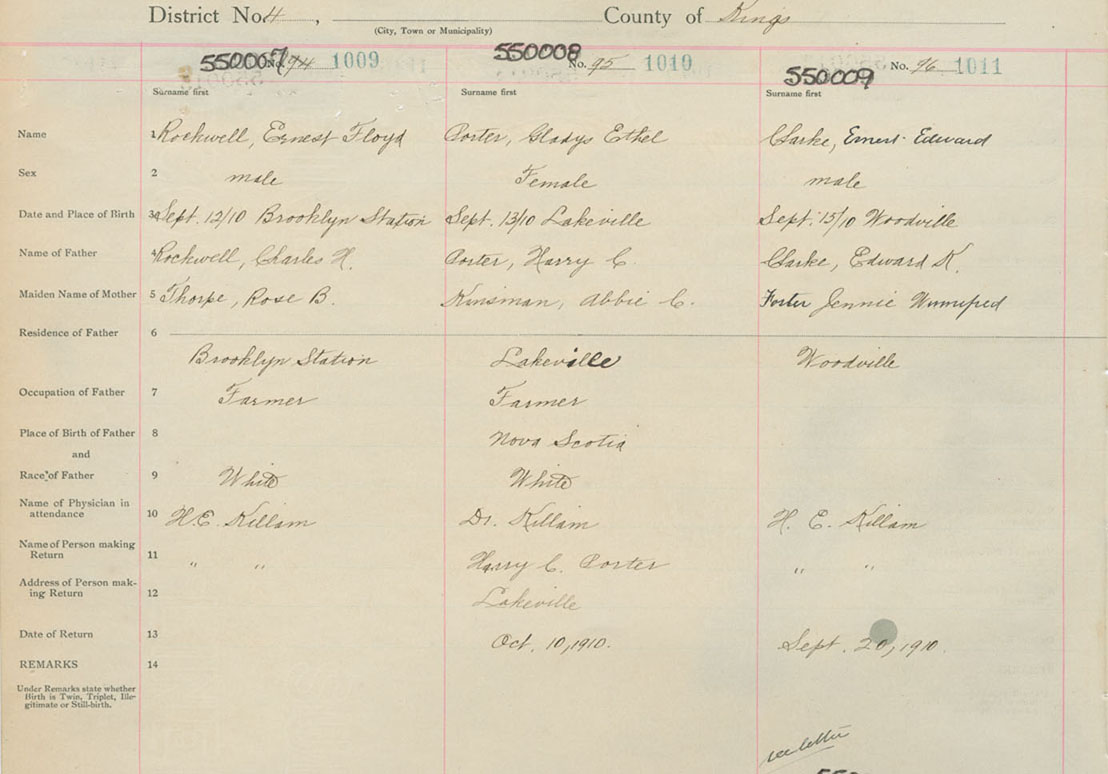 District No. 4, County of Kings
(City, Town or Municipality)
550007 No. 94 1009 550008 No. 95 1010 550009 No. 96 1011
Surname first Surname first Surname first
Name 1 Rockwell, Ernest Floyd Porter, Gladys Ethel Clarke, Ernest Edward
Sex 2 male Female male
Date and Place of Birth 3 Sept. 12/10 Brooklyn Station Sept. 13/10 Lakeville Sept. 15/10 Woodville
Name of Father 4 Rockwell, Charles H. Porter, Harry C. Clarke, Edward K.
Maiden Name of Mother 5 Thorpe, Rose B. Kinsman, Abbie C. Foster Jennie Winnifred
Residence of Father 6
Brooklyn Station Lakeville Woodville
Occupation of Father 7 Farmer Farmer
Place of Birth of Father 8 Nova Scotia
and
Race of Father 9 White White
Name of Physician in
attendance 10 H.E. Killam Dr. Killam H. E. Killam
Name of Person making
Return 11 " " Harry C. Porter " "
Address of Person mak-
ing Return 12 Lakeville
Date of Return 13 Oct. 10, 1910. Sept. 20, 1910.
REMARKS 14
Under Remarks state whether
Birth is Twin, Triplet, Ille-
gitimate or Still-birth.
see letter